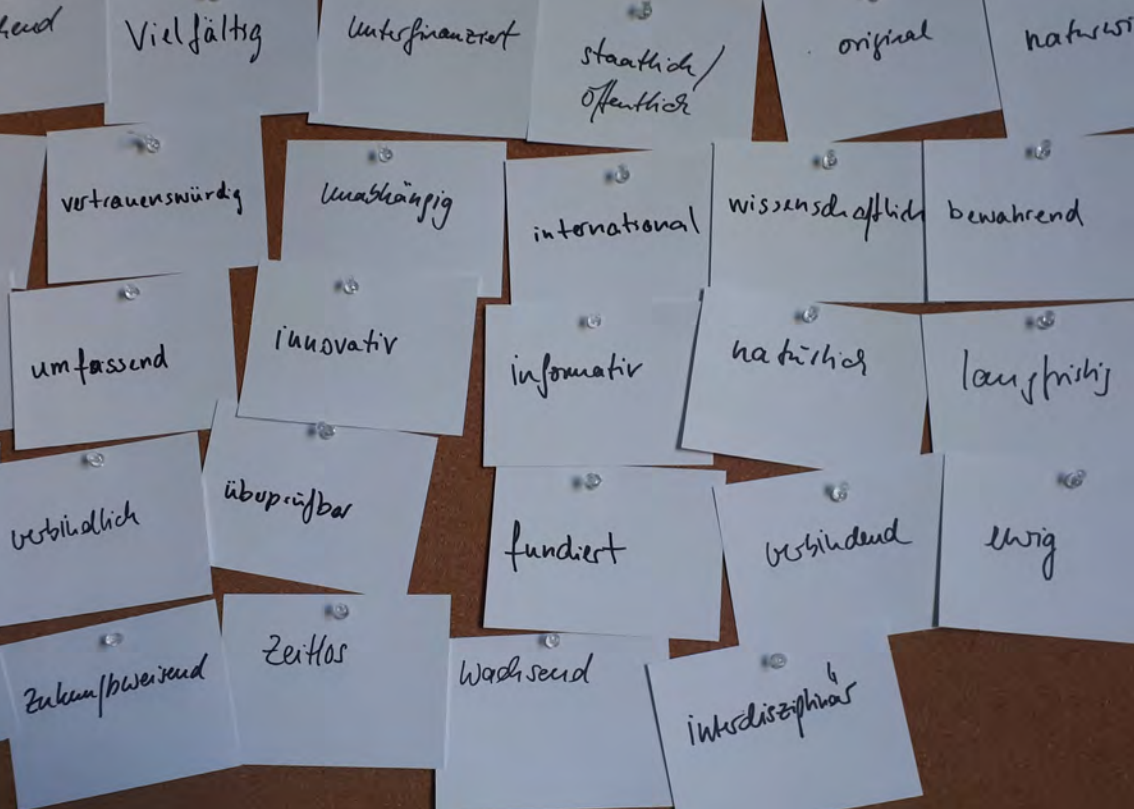 Vielfältig
unterfinanziert
staatlich/
öffentlich
original
vertrauenswürdig
Unabhängig
international
wissenschaftlich
bewahrend
umfassend
innovativ
informativ
natürlich
langfristig
verbindlich
überprüfbar
fundiert
verbindend
ewig
Zukunftsweisend
Zeitlos
Wachsend
interdisziplinär